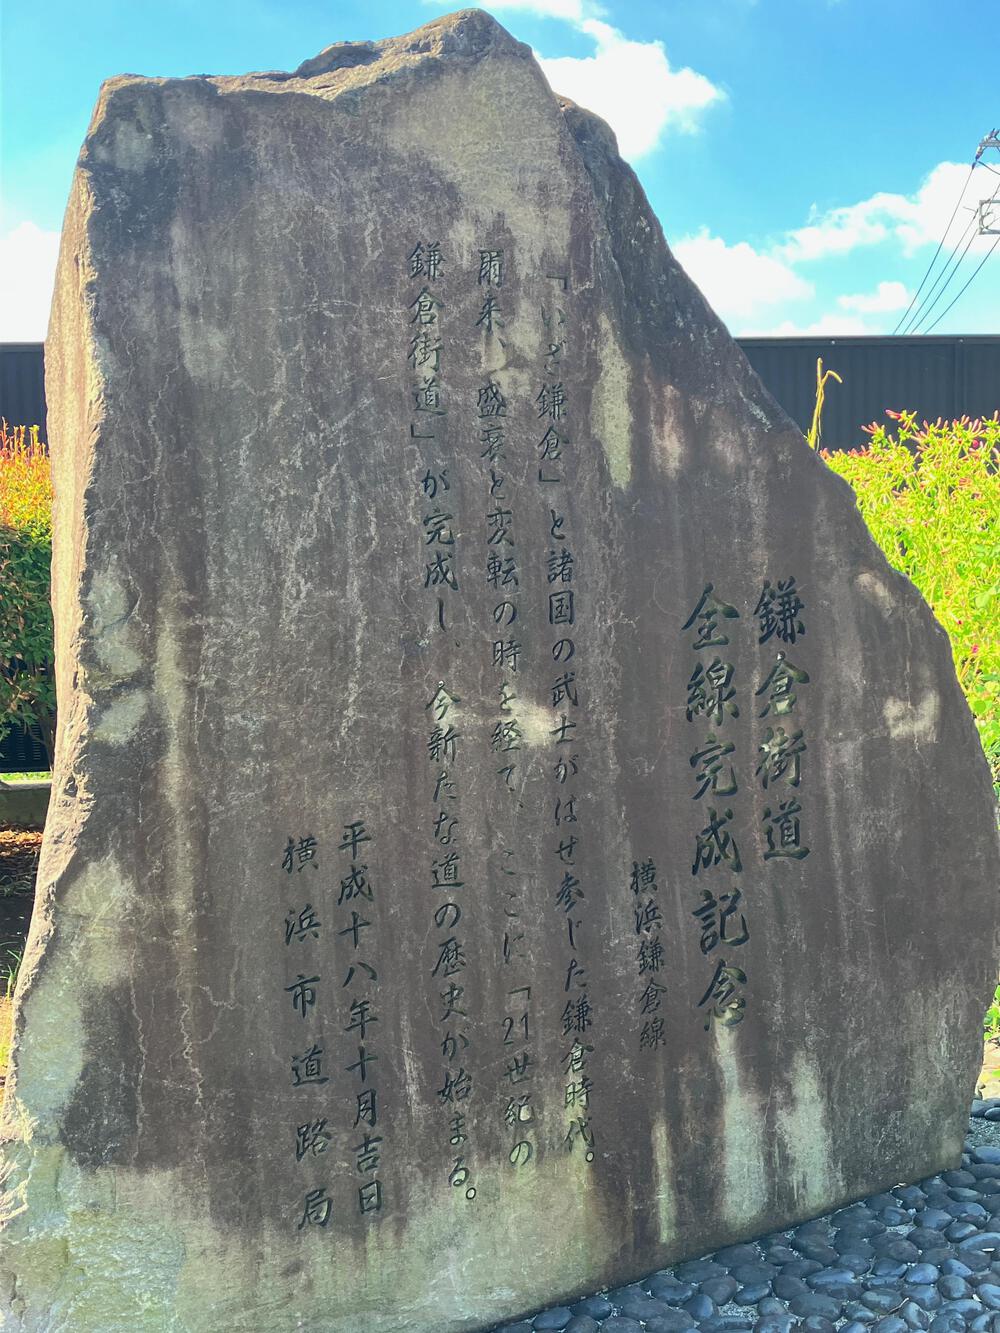 鎌倉街道
全線完成記念
横浜鎌倉線
「いざ鎌倉」と諸国の武士がはせ参じた鎌倉時代。
爾来、盛衰と変転の時を経て、ここに「21世紀の
鎌倉街道」が完成し、今新たな道の歴史が始まる。
平成十八年十月吉日
横浜市道路局